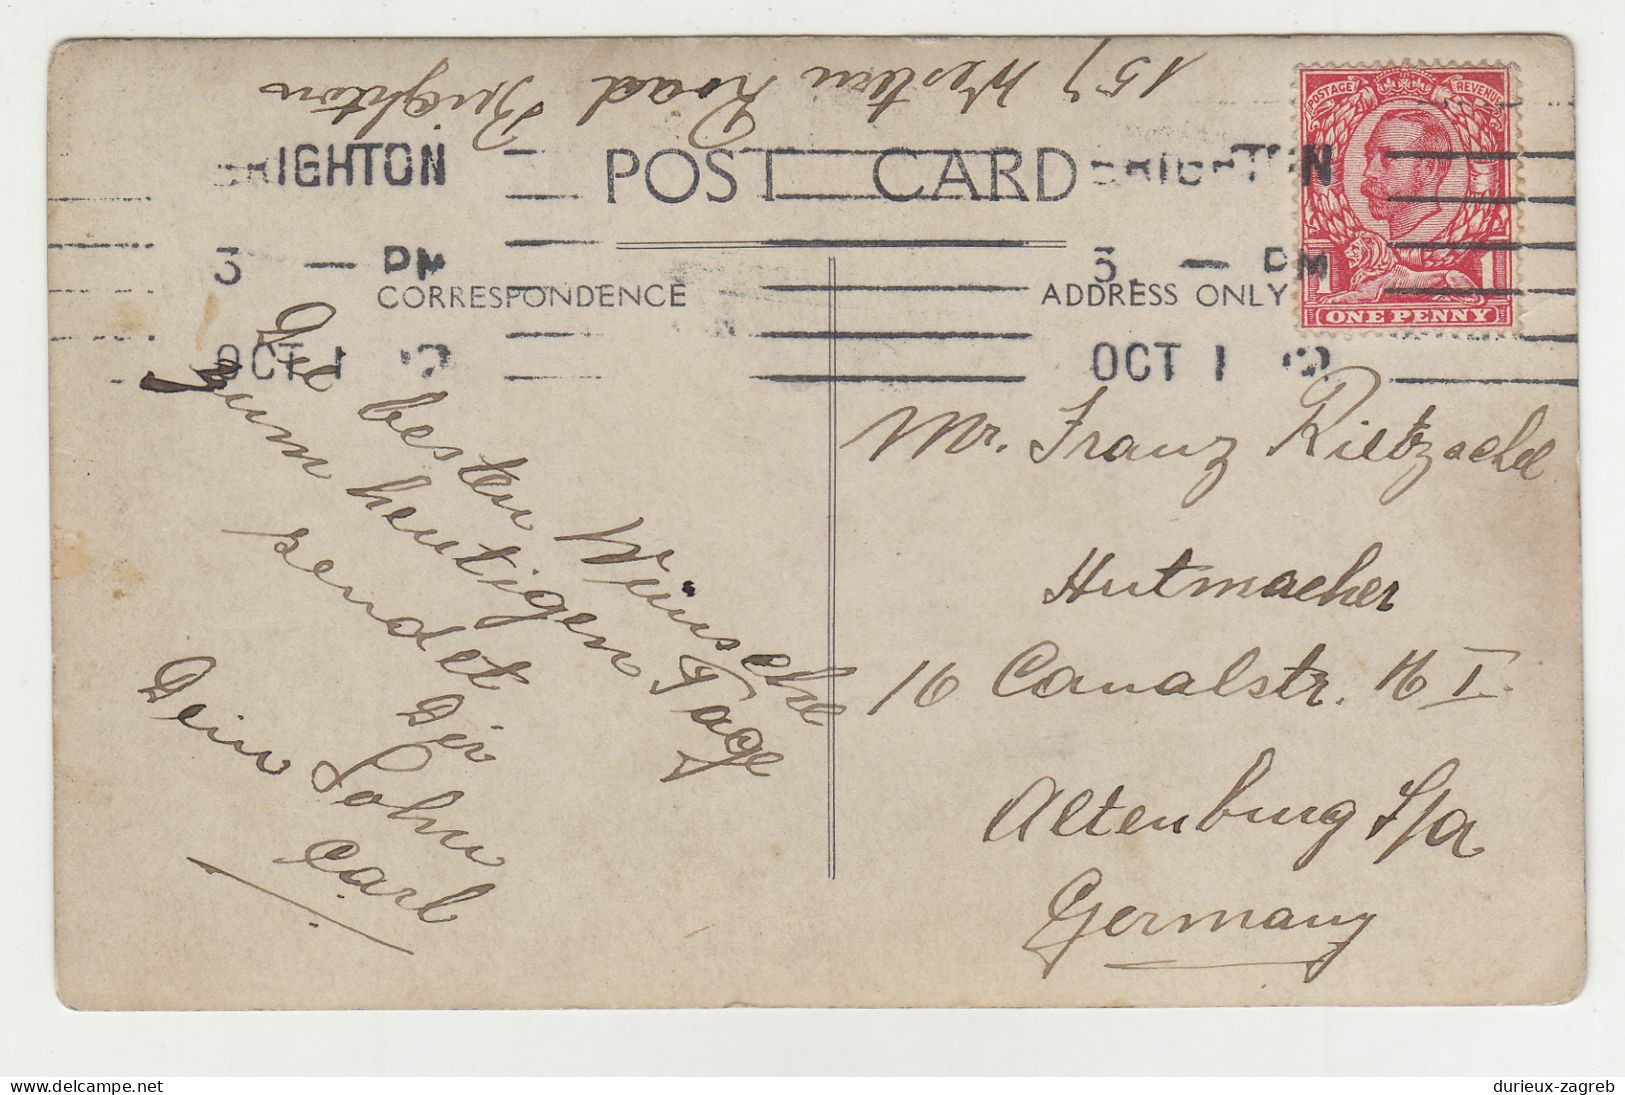 157 Western Road Brighton
BRIGHTON
3 — PM
OCT 1
POST CARD
BRIGHTON
3 — PM
OCT 1
POSTAGE REVENUE
1 1
ONE PENNY
CORRESPONDENCE
ADDRESS ONLY
Die besten Wünsche
zum heutigen Tage
sendet Dir
Dein Sohn
Carl
Mr. Franz Rietzschel
Hutmacher
16 Canalstr. 16 I.
Altenburg S/A
Germany
durieux-zagreb